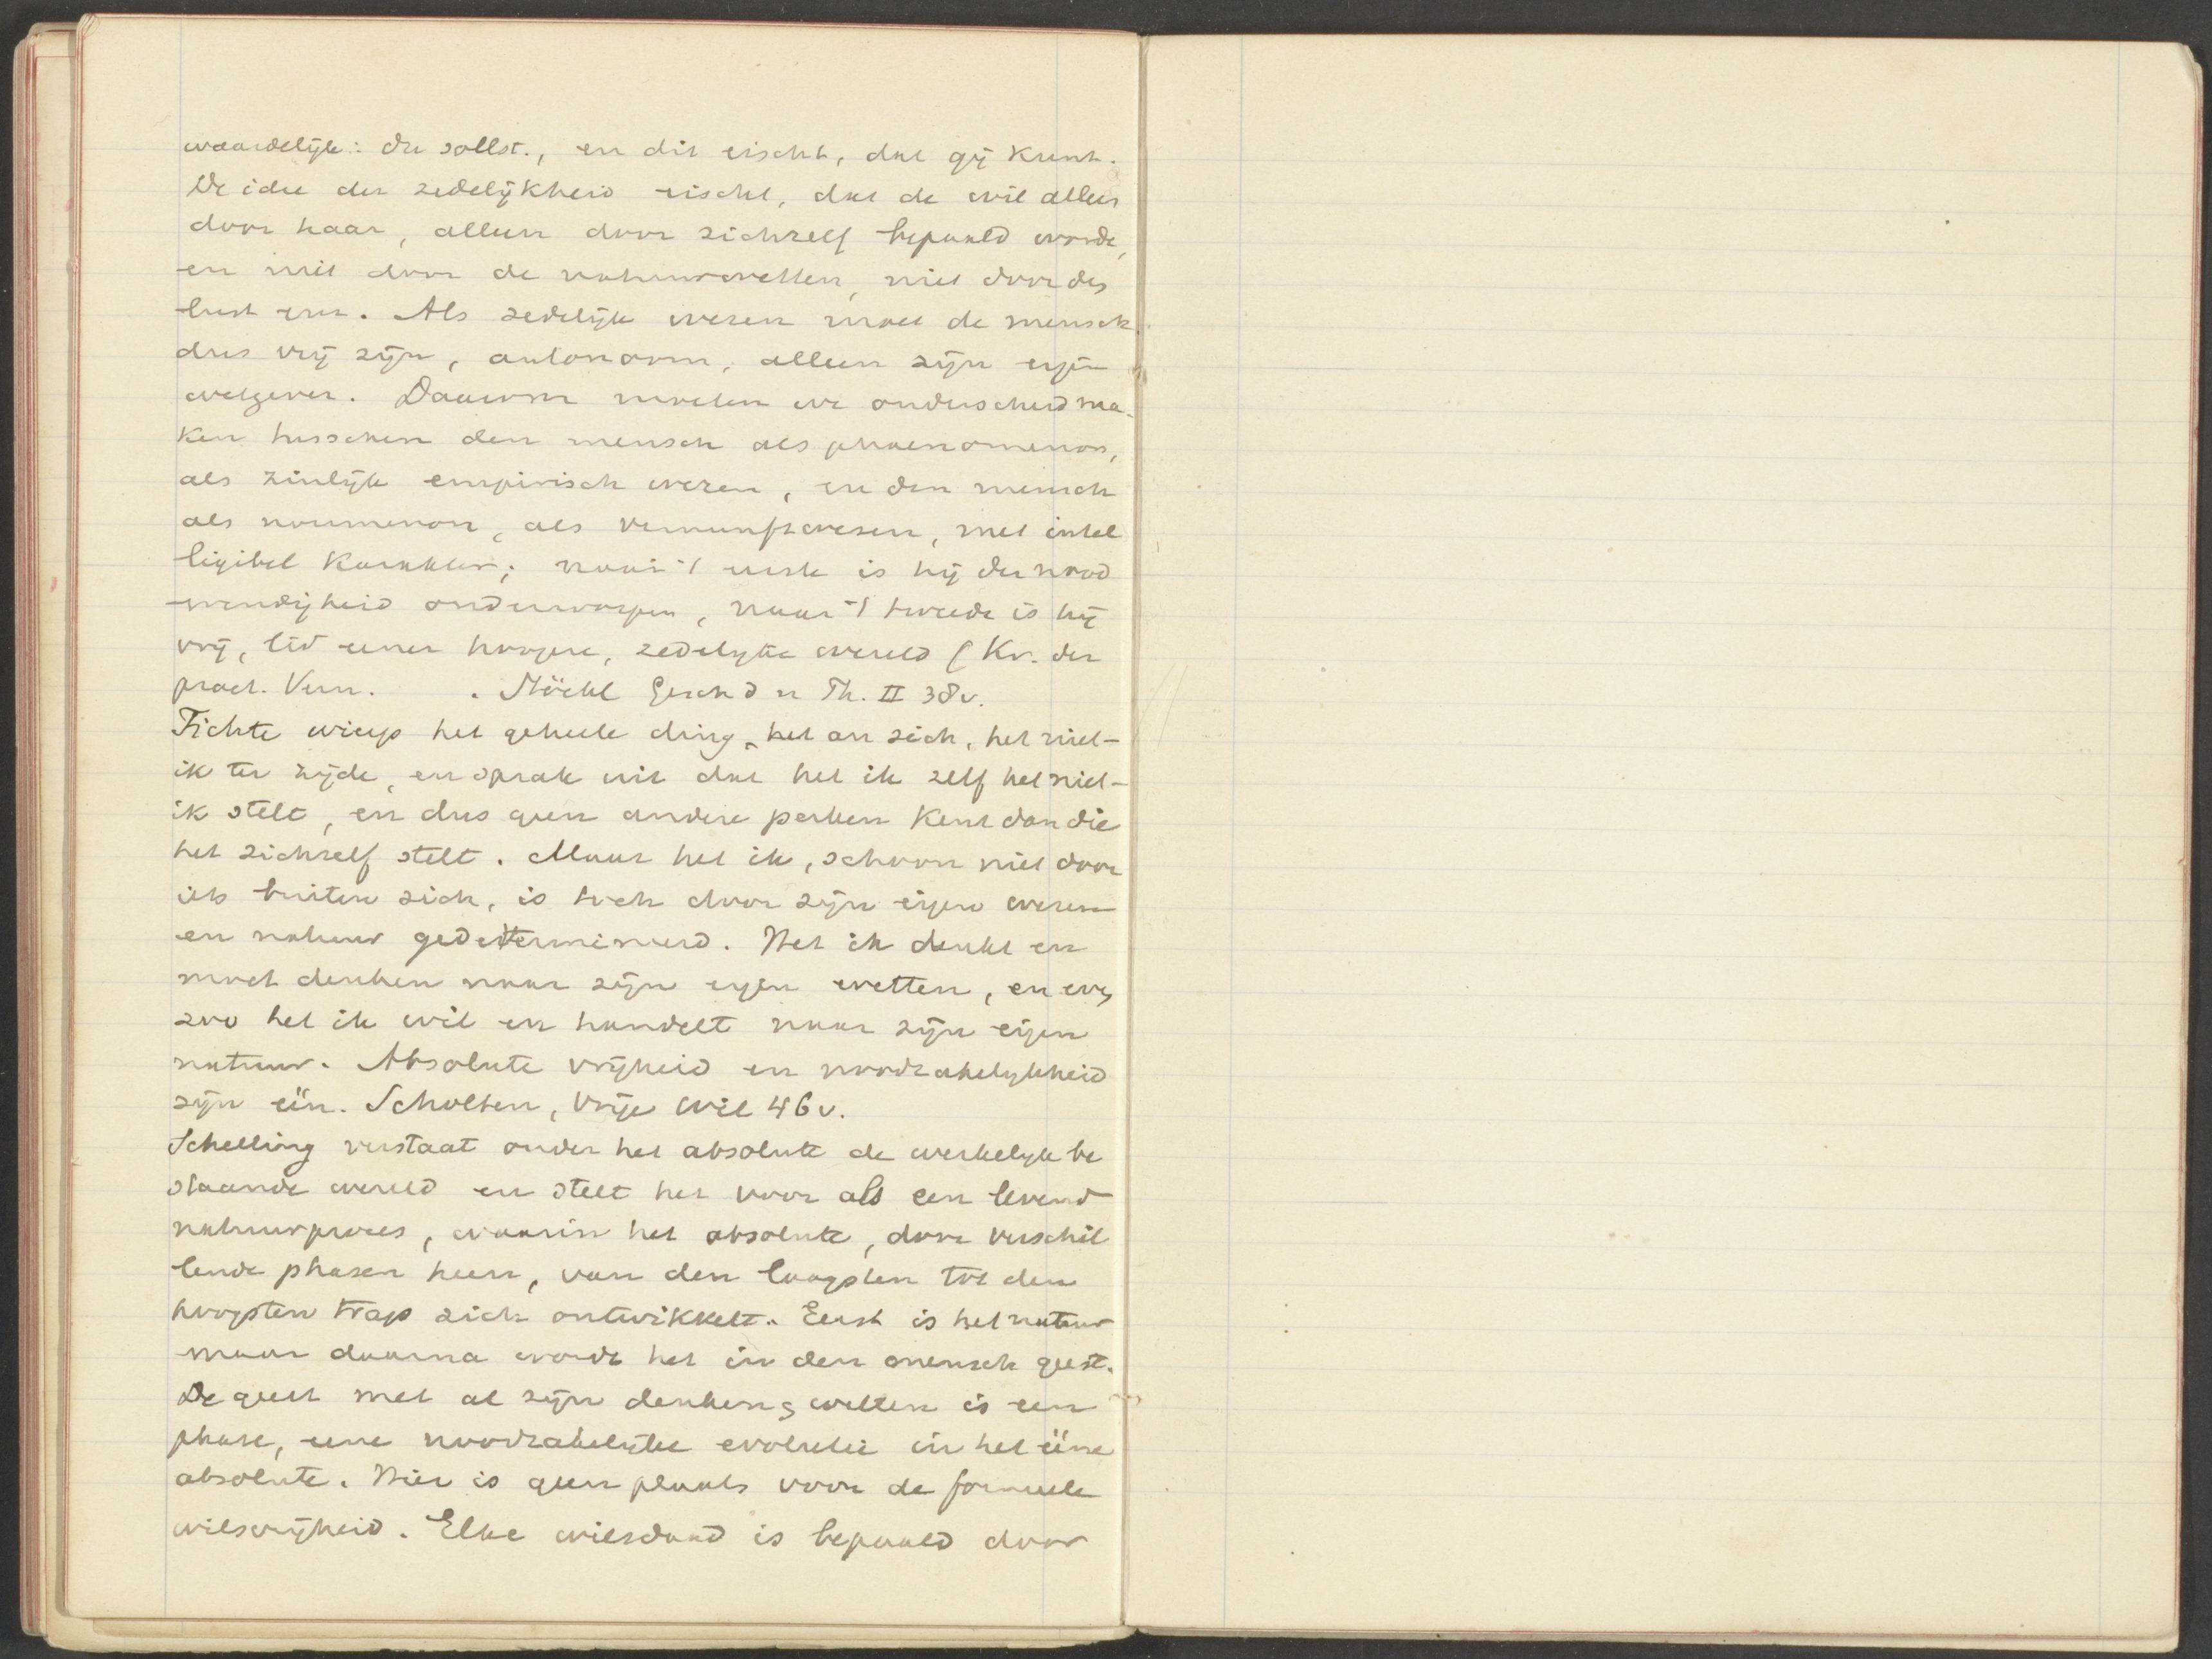 waardelijk: du sollst., en dit eischt, dat gij kunt.
De idee der zedelijkheid eischt, dat de wil alleen
door haar, alleen door zichzelf bepaald worde,
en niet door de natuurwetten, niet door des
lust enz. Als zedelijk wezen moet de mensch
dus vrij zijn, autonoom, alleen zijn eigen
wetgever. Daarom moeten we onderscheid ma-
ken tusschen den mensch als phaenomenon,
als zinlijk empirisch wezen, en den mensch
als noumenon, als vernunftwesen, met intel
ligibel karakter; naar 't eerste is hij der nood
wendigheid onderworpen, naar 't tweede is hij
vrij, lid eener hoogere, zedelijke wereld (Kr. der
pract. Vern. . Stöckl Gesch d n Th. II 38v.
Fichte wierp het geheele ding, het an sich, het niet-
ik ter zijde, en sprak uit dat het ik zelf het niet-
ik stelt, en dus geen andere perken kent dan die
het zichzelf stelt. Maar het ik, schoon niet door
iets buiten zich, is toch door zijn eigen wezen
en natuur gedetermineerd. Het ik denkt en
moet denken naar zijn eigen wetten, en even
zoo het ik wil en handelt naar zijn eigen
natuur. Absolute vrijheid en noodzakelijkheid
zijn één. Scholten, Vrije Wil 46v.
Schelling verstaat onder het absolute de werkelijk be
staande wereld en stelt het voor als een levend
natuurproces, waarin het absolute, door verschil
lende phasen heen, van den laagsten tot den
hoogsten trap zich ontwikkelt. Eerst is het natuur
maar daarna wordt het in den mensch geest.
De geest met al zijn denken & willen is een
phase, eene noodzakelijke evolutie in het ééne
absolute. Hier is geen plaats voor de formeele
wilsvrijheid. Elke wilsdaad is bepaald door